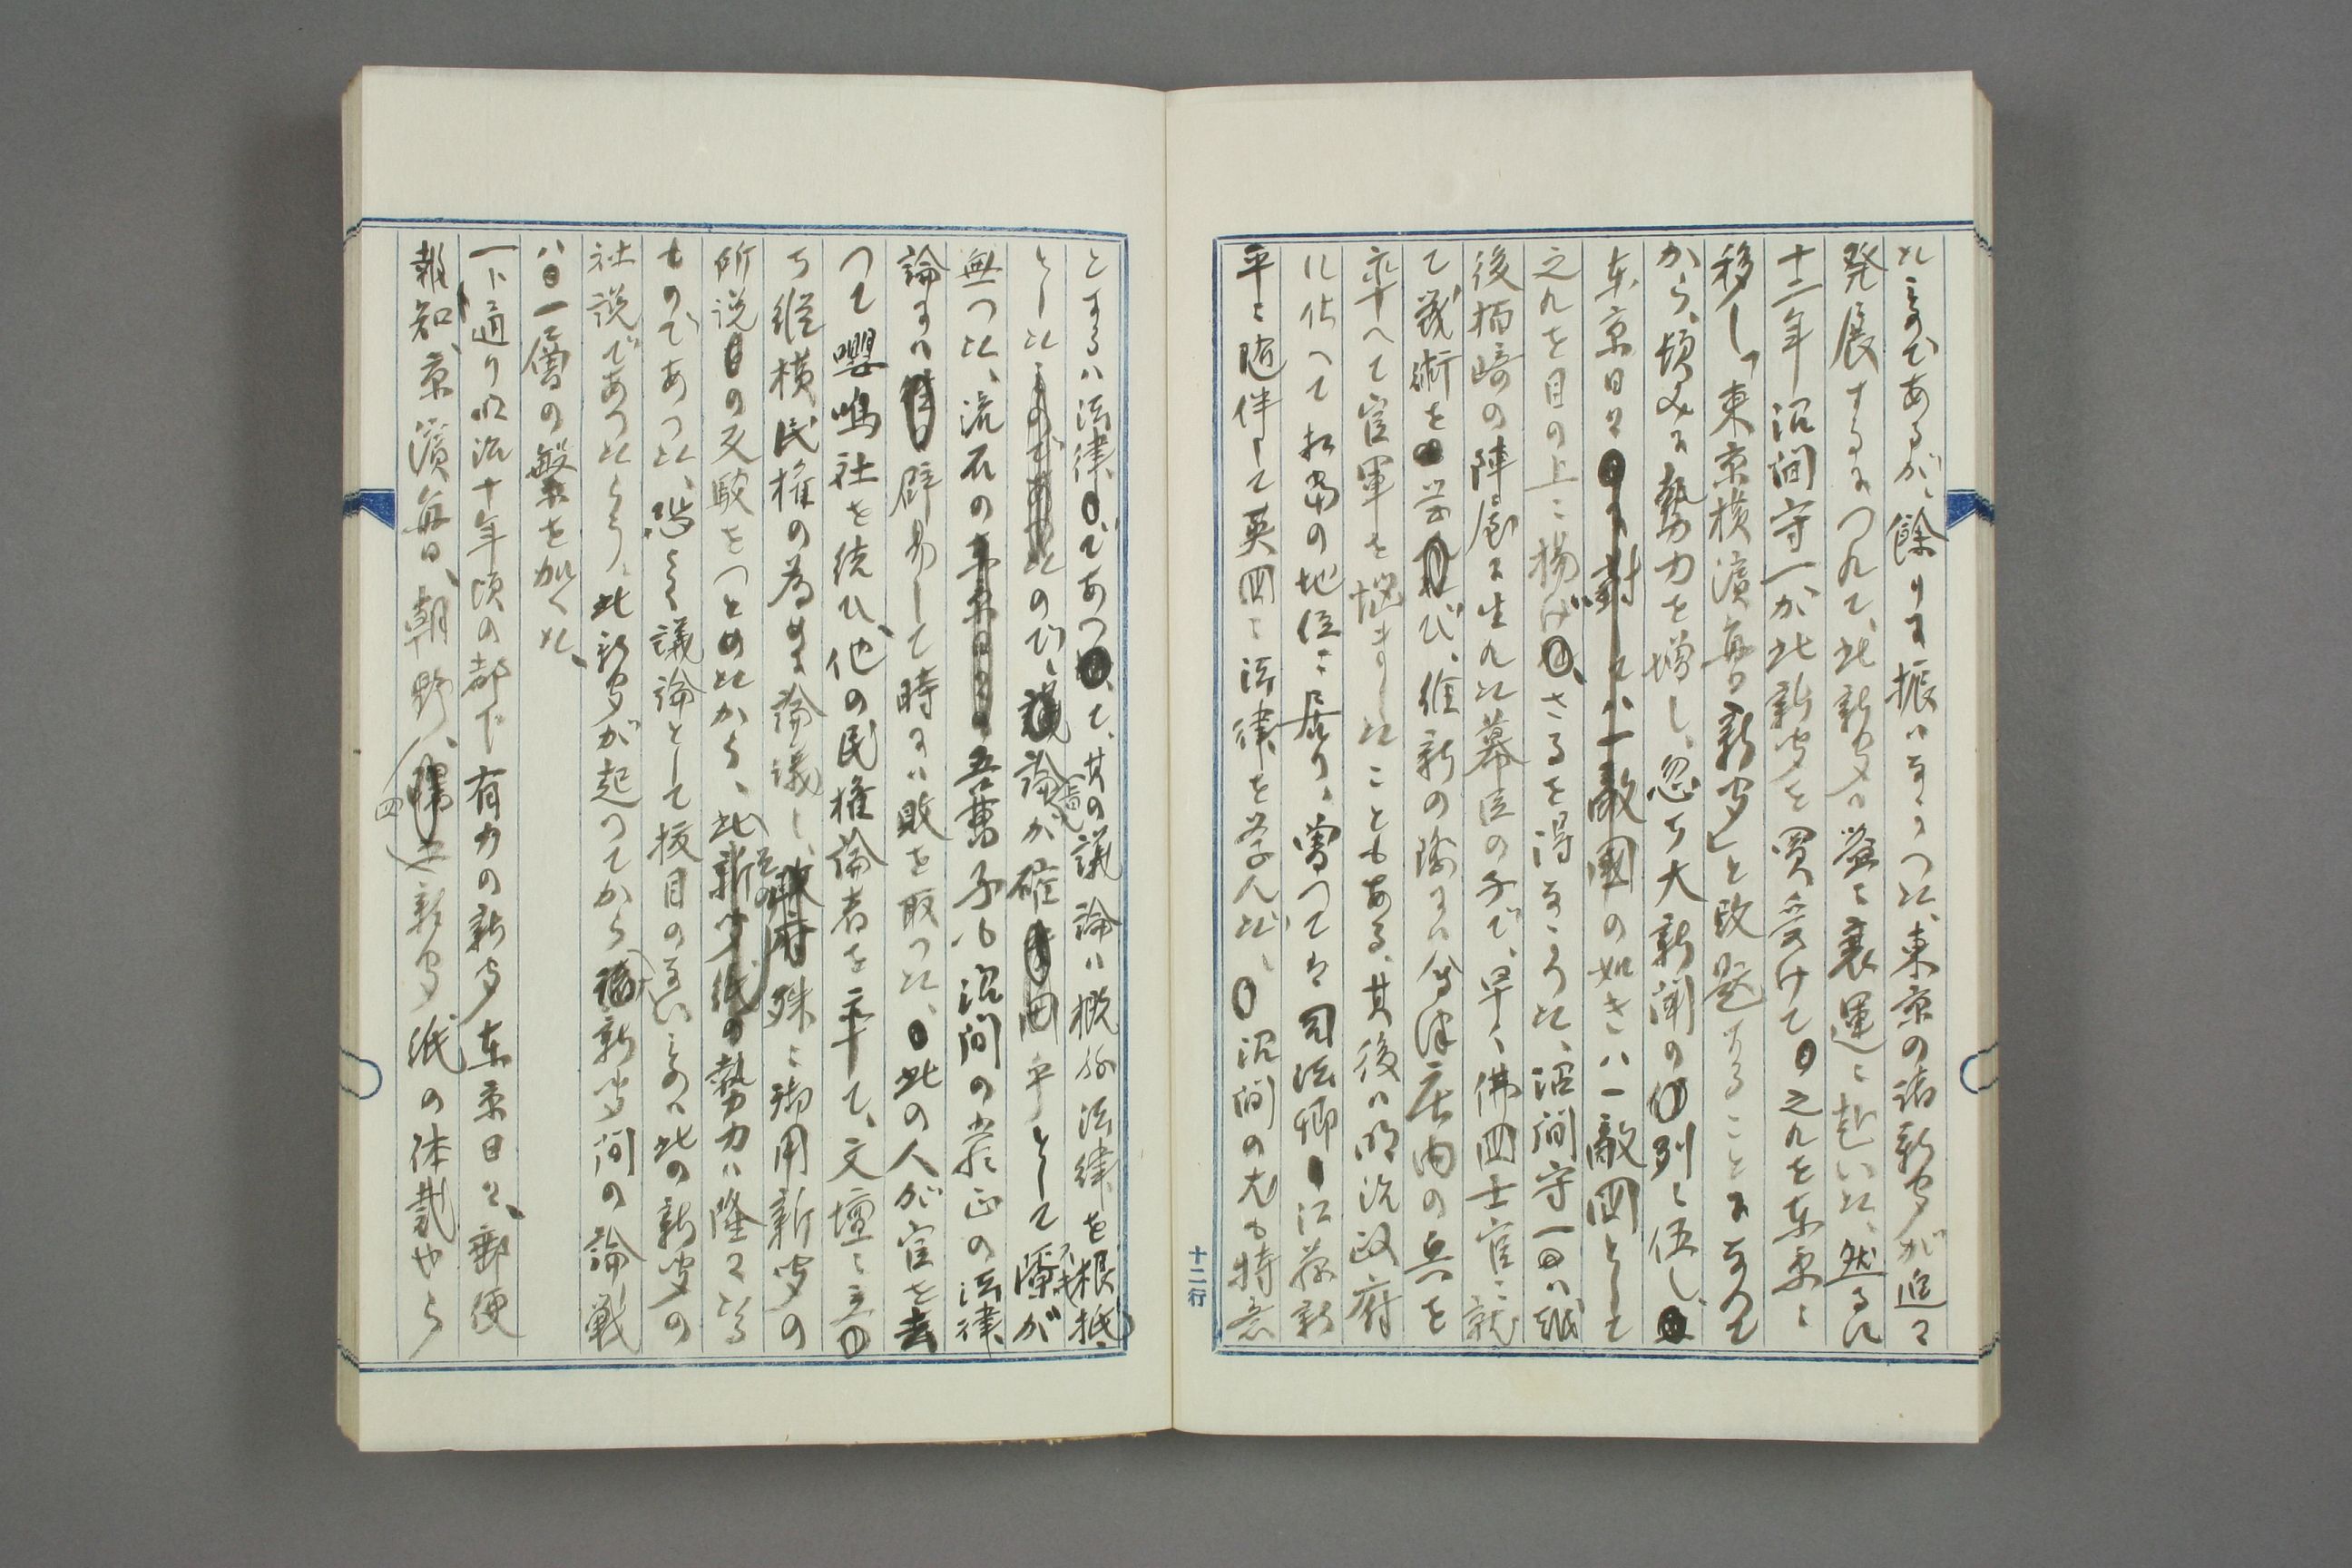 れたのであるが、餘りに振はなかつた、東京の諸新聞が追々
発展するにつれて、此新聞は益々衰運に赴いた、然るに
十二年沼間守一が此新聞を買受けて之れを東京に
移し、「東京横濱毎日新聞」と改題することになつて
から、頓みに勢力を増し、忽ち大新聞の列に伍し、
東京日々に対しては一敵國の如きは一敵国として
之れを目の上に揚げさるを得なかつた、沼間守一は
後柄崎の陣屋に生れた幕臣の子で、早く佛国士官に就
て戦術を学び、維新の際には会津庄内の兵を
率へて官軍を悩ましたこともある、其後は明治政府
に仕へて枢要の地位に居り、嘗つては司法卿江藤新
平に随伴して英国に法律を学んだ、沼間の尤も特意
十二行
とするは法律であつて、其の議論は概ね法律を根拠
としたので、議論が確固平として隙が
無つた、流石の吾曹子も沼間の厳正の法律
論には辟易して時には敗を取つた、此の人が官を去
つて嚶鳴社を統ひ、他の民権論者を率て、文壇に立
ち縦横民権の為めに論議し、殊に御用新聞の
所説の反駁をつとめたから、此新聞紙の勢力は隆々たる
ものであつた、恐らく議論として抜目のないのは此の新聞の
社説であつたらう、此新聞が起つてから諸新聞間の論戦
は一層の繁を加へた、
一ト通り明治十年頃の都下有力の新聞東京日々、郵便
報知、京濱毎日、朝野、四新聞紙の体裁やら